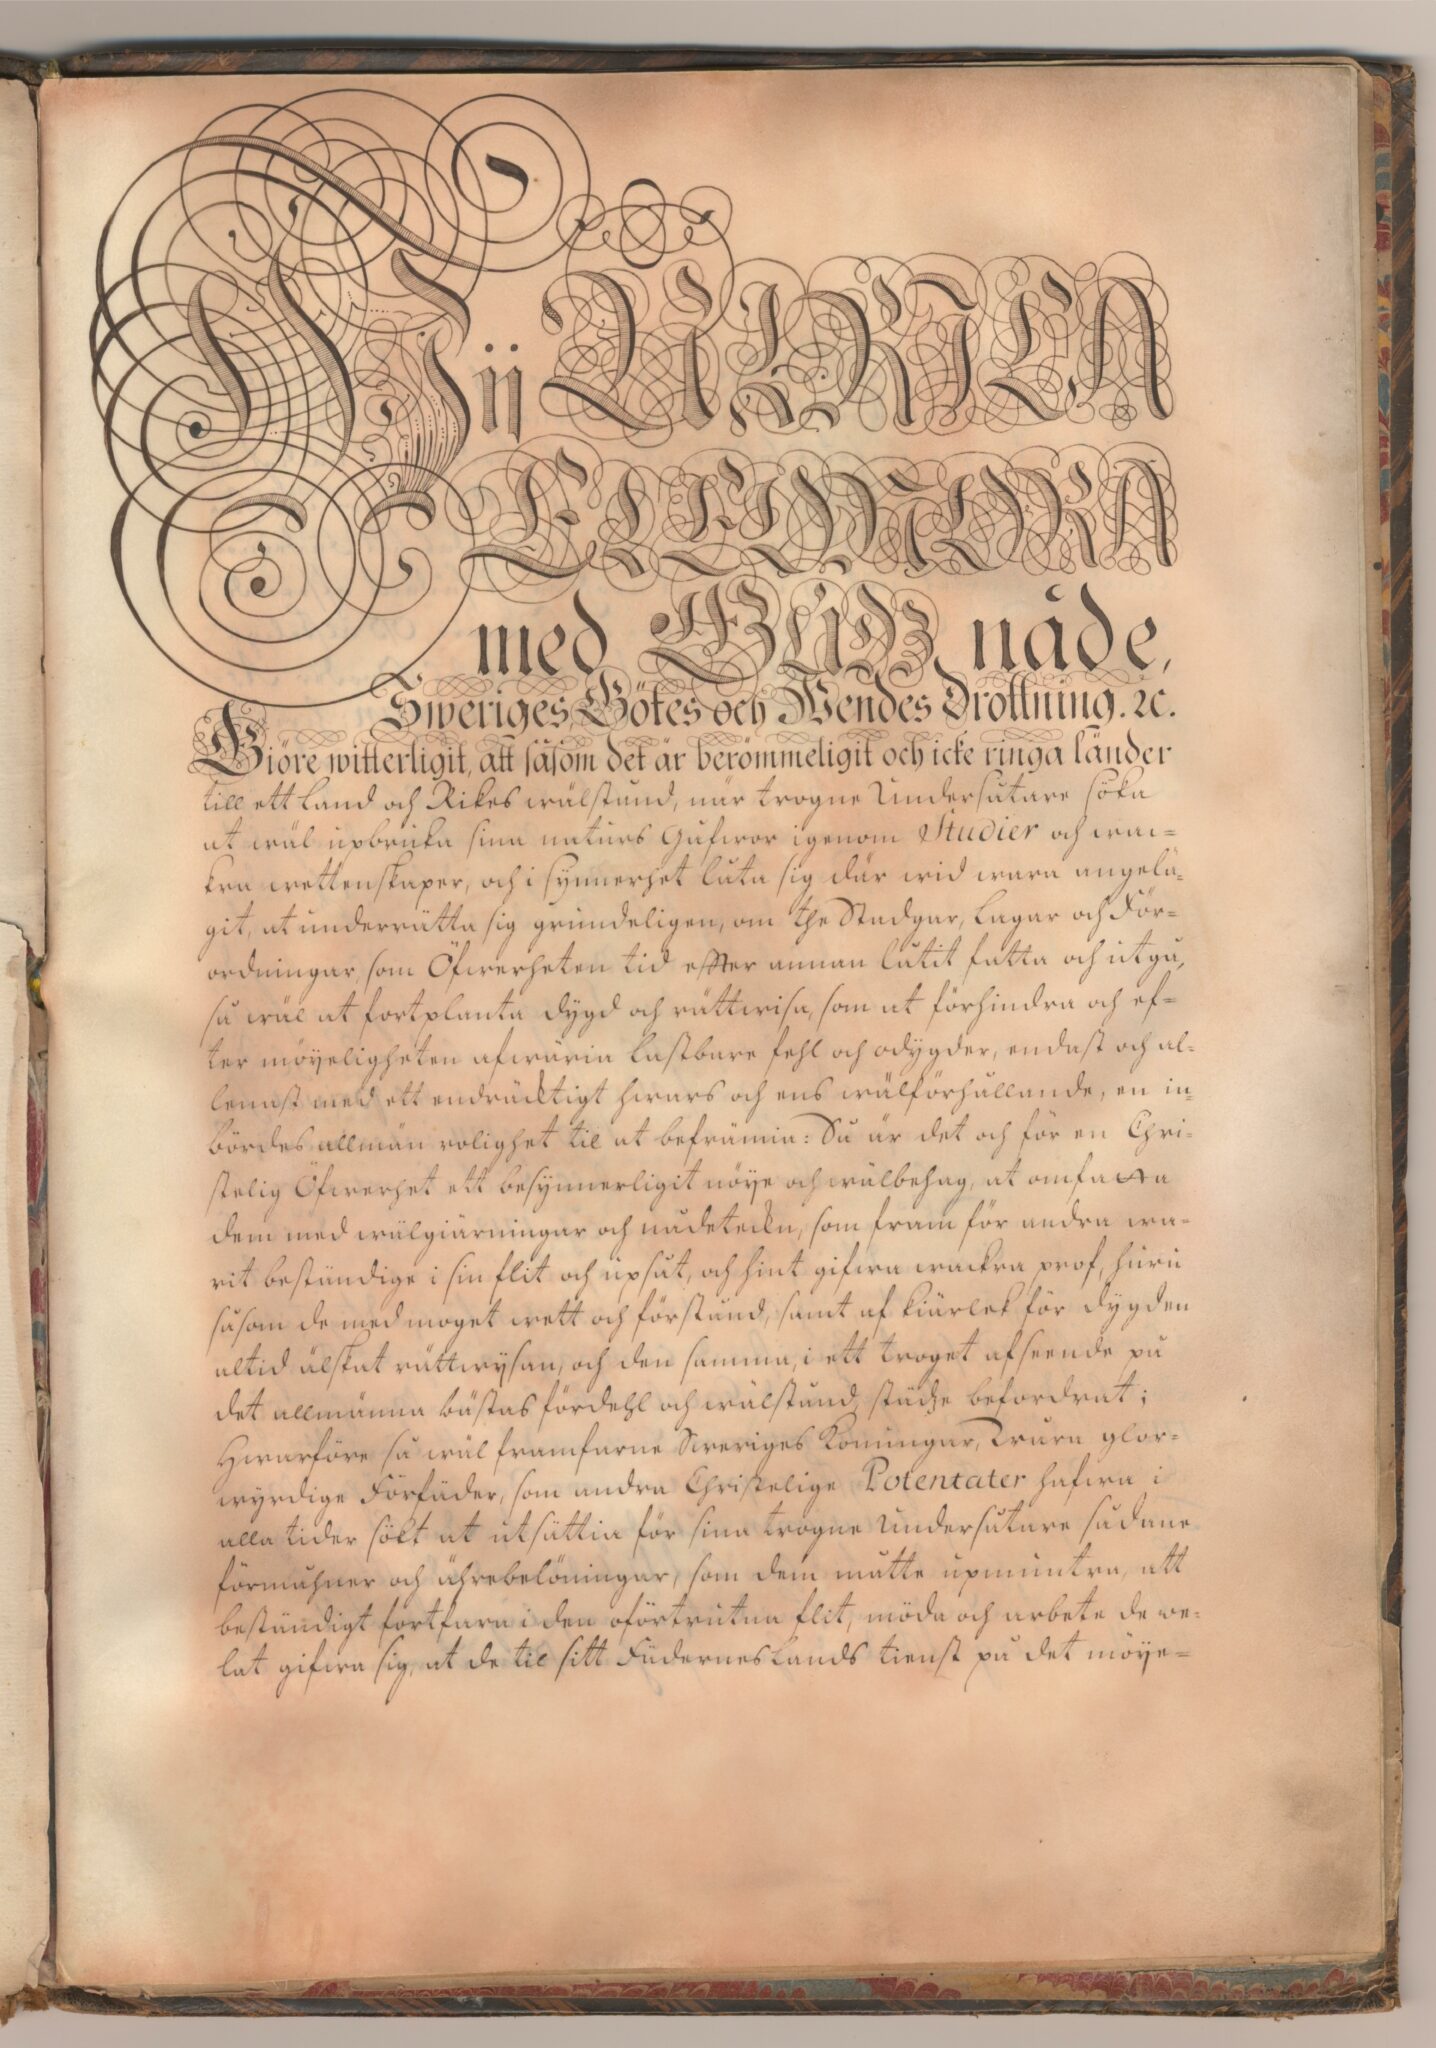 Wij ULRICA
ELEONORA
med GUDZ nåde,
Sweriges, Götes och Wendes Drottning. &c.
Giöre witterligit, att såsom det är berömmeligit och icke ringa länder
till ett Land och Rikes wälstånd, när trogne Undersåtare söka
at wäl upbruka sina naturs Gåfwor igenom Studier och wac-
kra wettenskaper, och i synnerhet låta sig där wid wara angelä-
git, at underrätta sig grundeligen, om the Stadgar, Lagar och För-
ordningar, som Öfwerheten tid efter annan låtit fatta och utgå,
så wäl at fortplanta dygd och rättwisa, som at förhindra och ef-
ter möyeligheten afwäria lastbare fehl och odygder, endast och al-
lenast med ett endräcktigt hwars och ens wälförhållande, en in-
bördes allmän rolighet til at befrämia: Så är det och för en Chri-
stelig Öfwerhet ett besynnerligit nöye och wälbehag, at omfatta
dem med wälgiärningar och nådetecken, som fram för andra wa-
rit beständige i sin flit och upsåt, och hint gifwa wackra prof, huru
såsom de med moget wett och förstånd, samt af kiärlek för dygden
altid älskat rättwysan, och den samma, i ett troget afseende på
det allmänna bästas fördehl och wälstånd städze befordrat;
Hwarföre så wäl framfarne Sweriges Konungar, Wåra glor-
wyrdige Förfäder, som andra Christelige Potentater hafwa i
alla tider sökt at utsättia för sina trogne Undersåtare sådane
förmåhner och ährebelöningar, som dem måtte upmuntra, att
beständigt fortfara i den oförtrutna flit, möda och arbete de we-
lat gifwa sig, at de til sitt Fäderneslands tienst på det möye-